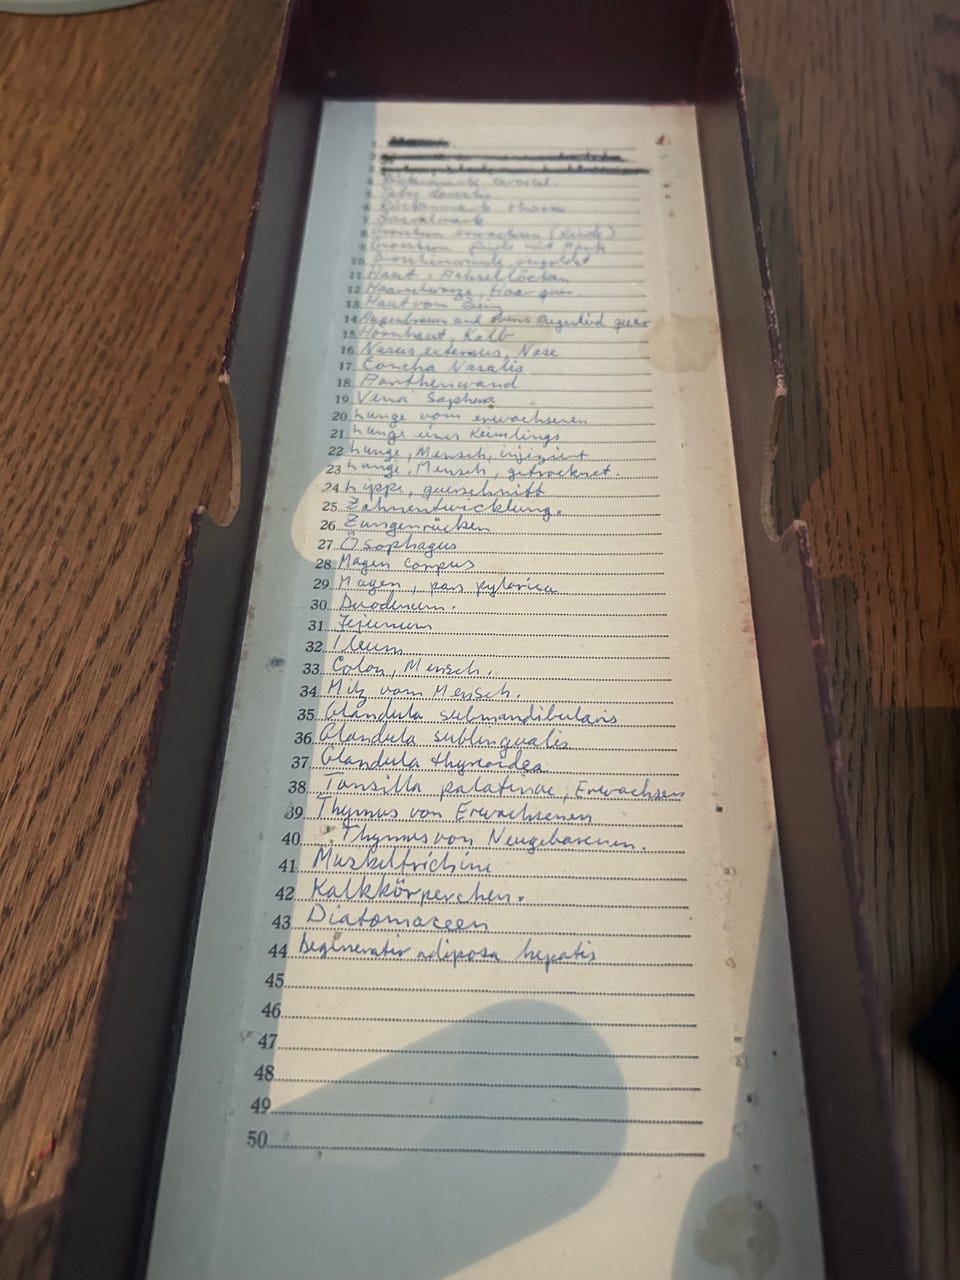 4 Rückenmark cervical.
5 Tabes dorsalis
6 Rückenmark
7 Sacralmark
8 Grosshirn erwachsen (Rinde)
9 Grosshirn Rinde mit Mark
10 vergoldet
11 Haut, Achsellöcken
12 Haar quer.
13 Haut vom Bein
14 Augenbrauen und Augenlied quer
15 Hornhaut, Kalb
16 Nasus externus, Nase
17 Concha Nasalis
18
19 Vena Saphena
20 Lunge vom erwachsenen
21 Lunge eines Keimlings
22 Lunge, Mensch, injiziert
23 Lunge, Mensch, getrocknet.
24 Lippe, querschnitt
25 Zahnentwicklung.
26 Zungenrücken
27 Ösophagus
28 Magen Corpus
29 Magen, pars pylorica
30 Duodenum.
31 Jejunum
32 Ileum
33 Colon, Mensch.
34 Milz vom Mensch.
35 Glandula submandibularis
36 Glandula sublingualis
37 Glandula thyreoidea
38 Tonsilla palatinae, Erwachsen
39 Thymus von Erwachsenen
40 Thymus von Neugeborenen.
41 Muskeltrichine
42 Kalkkörperchen.
43 Diatomaceen
44 Degenerativ adiposa hepatis
45
46
47
48
49
50